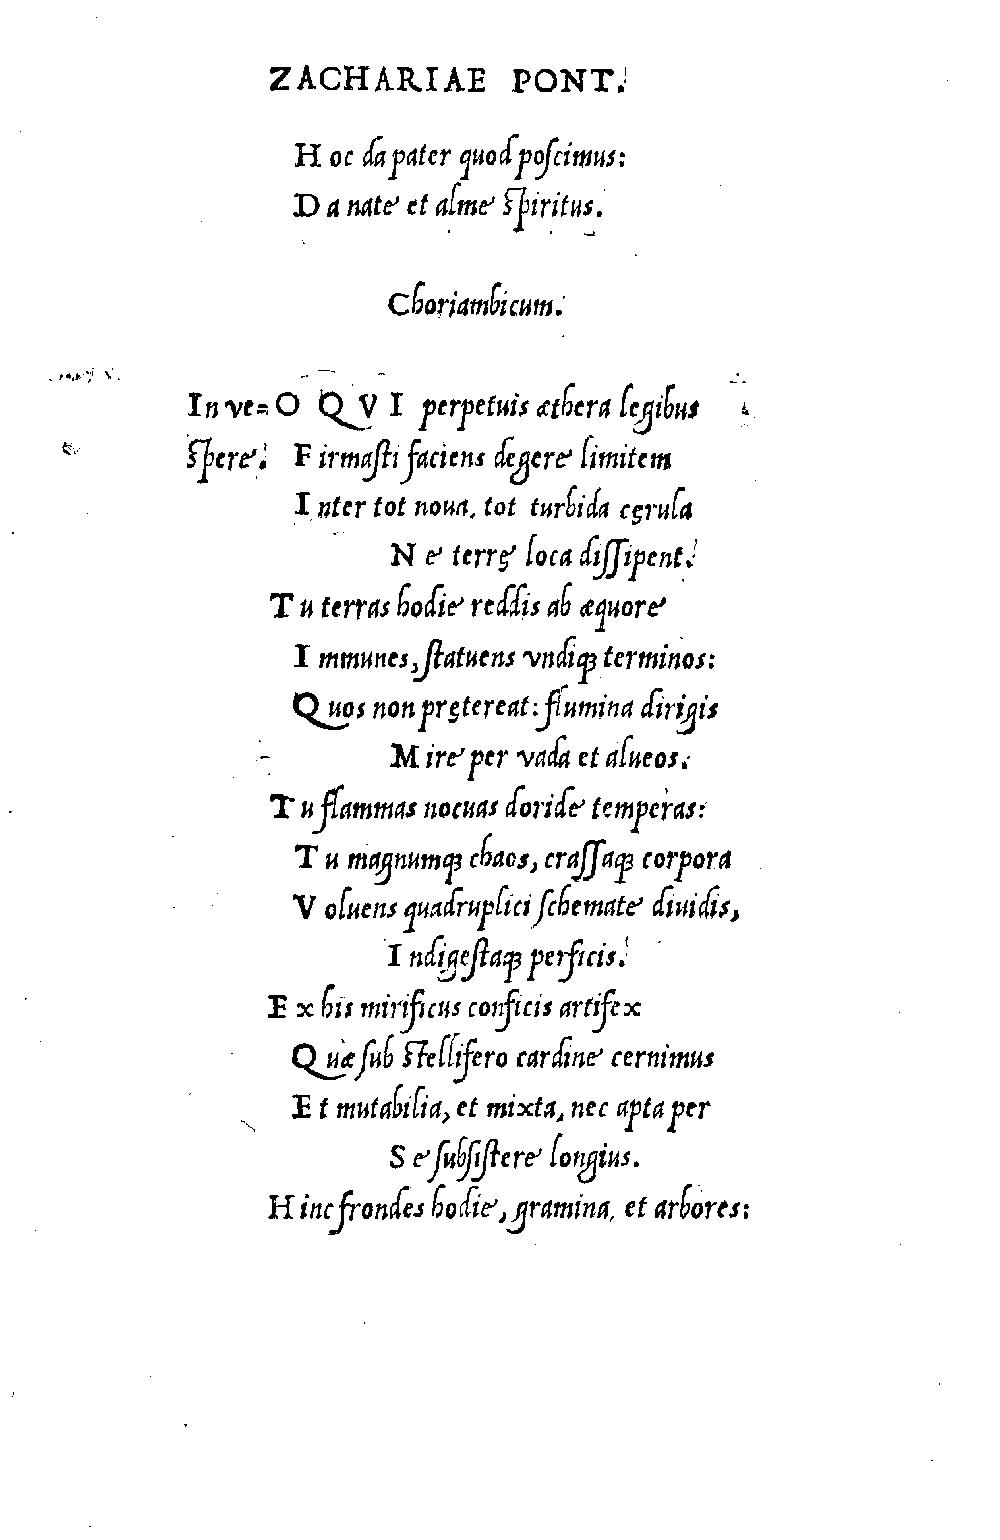 ZACHARIAE PONT.
Hoc da pater quod poscimus:
Da nate et alme spiritus.
Choriambicum.
In ve= O QVI perpetuis æthera legibus
spere. Firmasti faciens degere limitem
Inter tot noua, tot turbida cęrula
Ne terrę loca dissipent.
Tu terras hodie reddis ab æquore
Immunes, statuens vndiqꝫ terminos:
Quos non prętereat: flumina dirigis
Mire per vada et alueos.
Tu flammas nocuas doride temperas:
Tu magnumqꝫ chaos, crassaqꝫ corpora
Voluens quadruplici schemate diuidis,
Indigestaqꝫ perficis.
Ex his mirificus conficis artifex
Quæ sub stellifero cardine cernimus
Et mutabilia, et mixta, nec apta per
Se subsistere longius.
Hinc frondes hodie, gramina, et arbores: